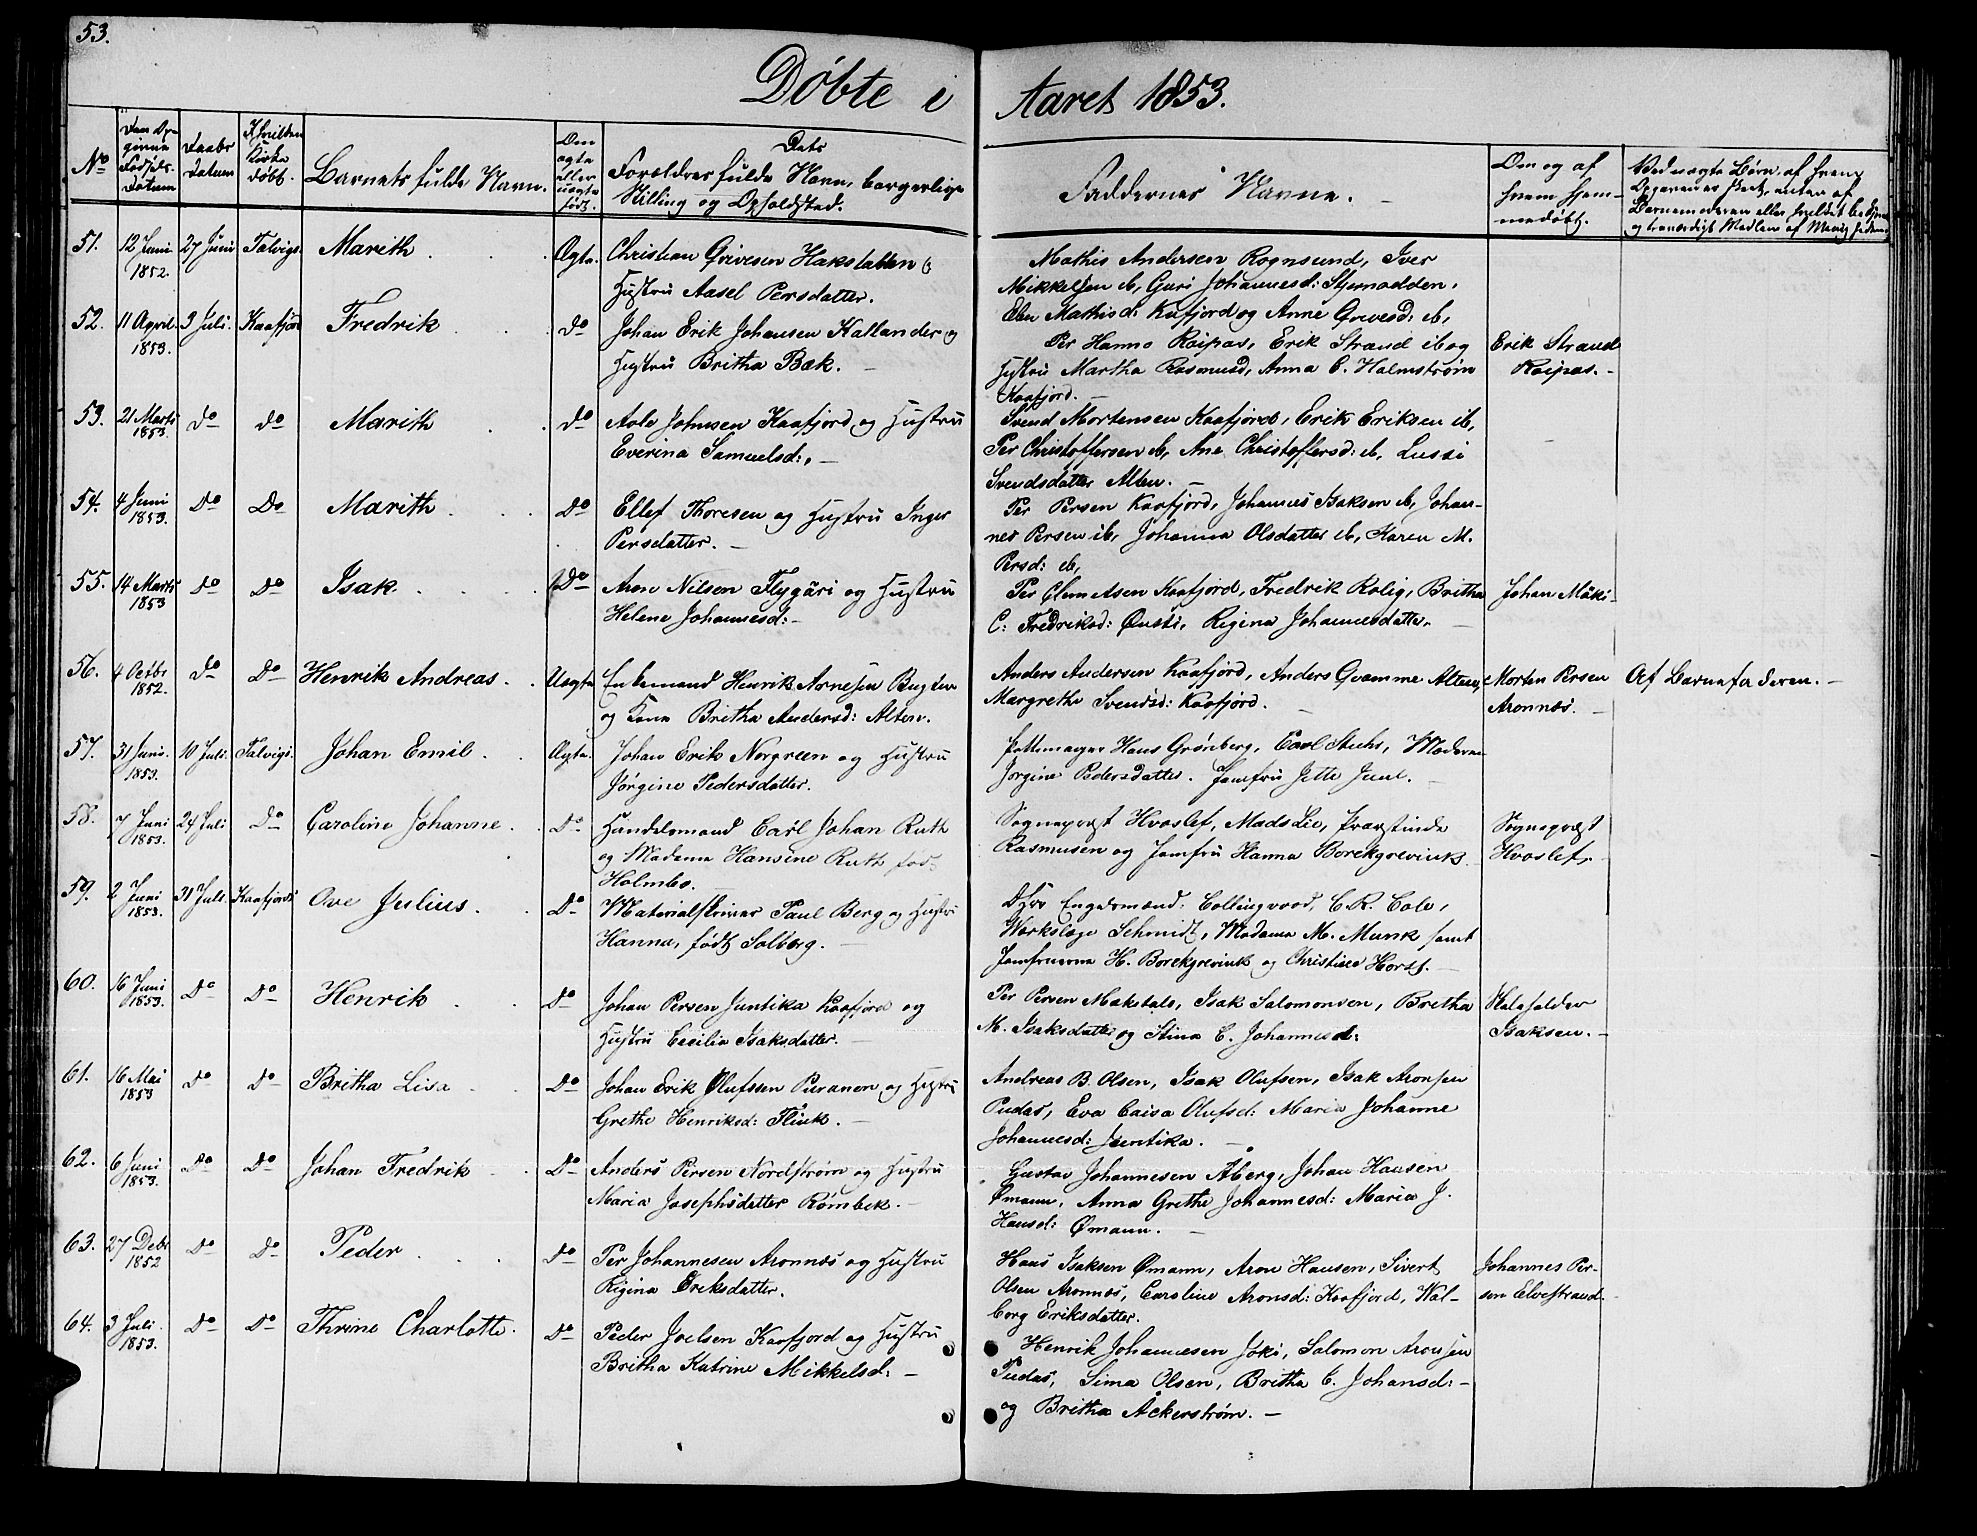 53.
Døbte i Aaret 1853.
No
Den Opgivne Fødsels-Datum
Daabs Datum
I hvilken Kirke døbt.
Barnets fulde Navn.
Om ægte eller uægte født.
Dets Forældres fulde Navn, borgerlige Stilling og Opholdsted.
Faddernes Navne.
Om og af hvem hjemmedøbt.
51. 12 Juni 1852. 27 Juni Talvigs Marith Ægte. Christian Hakstabben og
Hustru Aasel Persdatter.
Mathis Andersen Rognsund, Iver
Mikkelsen ib, Guri Johannesd: Stjernodden,
Elen Mathisd: Kufjord og Anne ib,
52. 11 April. 1853. 3 Juli. Kaafjord Fredrik Do Johan Erik Johansen Kallander og
Hustru Britha Bæk.
Per Hanno Raipas, Erik Strand ib og
Hustru Martha Rasmusd, Anna C. Holmstrøm
Kaafjord.
Erik Strand
Raipas.
53. 21 Marts 1853. do do Marith do Aole Johnsen Kaafjord og Hustru
Everina Samuelsd:
Svend Mortensen Kaafjord, Erik Eriksen ib,
Per Christoffersen ib, Ane Christoffersd: ib, Lussi
Svendsdatter Alten.
54. 4 Juni 1853. Do Do Marith Do Ellef Thoresen og Hustru Inger
Persdatter.
Per Persen Kaafjord, Johannes Isaksen ib, Johan-
nes Persen ib, Johanna Olsdatter ib, Karen M.
Persd: ib,
55. 14 Marts 1853 do Do Isak Do Aron Nilsen Flygäri og Hustru
Helene Johannesd:
Per Clemetsen Kaafjord, Fredrik Rolig, Britha
C: Fredriksd: Regina Johannesdatter,
Johan Mäki
56. 4 Octbr 1852. do Do Henrik Andreas Uægte Enkemand Henrik Arnesen Bugten
og Kone Britha Andersd: Alten.
Anders Andersen Kaafjord, Anders Qvamme Alten,
Margrethe Svendsd: Kaafjord.
Morten Persen
Aronnæs.
Af Barnefaderen.
57. 31 Juni. 1853. 10 Juli. Talvigs. Johan Emil Ægte. Johan Erik Norgreen og Hustru
Jørgine Pedersdatter.
Pottemager Hans Grønberg, Carl Stuhs, Moderen
Jørgine Pedersdatter. Jomfru Jette Juul.
58. 7 Juni 1853. 24 Juli Do Caroline Johanne Do Handelsmand Carl Johan Ruth
og Madame Hansine Ruth født
Holmbo.
Sognepræst Hvoslef, Mads Lie, Præstinde
Rasmusen og Jomfru Hanna Borckgrevink.
Sognepræst
Hvoslef.
59. 2 Juni 1853. 31 Juli. Kaafjords Ove Julius Do Materialskriver Paul Berg og Hustru
Hanna, født Solberg.
DHrr Collingwood, C. R. Cole,
Værkslæge Schmidt, Madame M. Munk samt
Jomfruerne H. Borckgrevink og Christine Horst.
60. 16 Juni 1853. Do Do Henrik Do Johan Persen Juntika Kaafjord og
Hustru Cecilia Isaksdatter.
Per Persen Makstale, Isak Salomonsen, Britha
M. Isaksdatter og Stina C. Johannesd:
Isaksen.
61. 16 Mai 1853 Do Do Britha Lisa Do Johan Erik Olufssen Puranen og Hustru
Grethe Henriksd: Flink.
Andreas B. Olsen, Isak Olufsen, Isak Aronsen
Pudas, Eva Caisa Olufsd: Maria Johanne
Johannesd: Juntika.
62. 6 Juni 1853. Do Do Johan Fredrik Do Anders Persen Nordstrøm og Hustru
Maria Josephsdatter Rømbek.
Gustav Johannesen Åberg, Johan Hansen
Ømann, Anna Grethe Johannesd: Maria J.
Hansd: Ømann.
63. 27 Debr 1852 Do Do Peder Do Per Johannesen Aronnæs og Hustru
Rigina Eriksdatter.
Hans Isaksen Ømann, Aron Hansen, Sivert
Olsen Aronnæs, Caroline Aronsd: Kaafjord, Wal-
borg Eriksdatter.
Johannes Per-
sen Elvestrand.
64. 3 Juli. 1853. Do Do Thrine Charlotte. Do Peder Joelsen Kaafjord og Hustru
Britha Katrine Mikkelsd:
Henrik Johannesen Joki, Salomon Aronsen
Pudas, Sima Olsen, Britha C. Johansd:
og Britha Åckerstrøm.